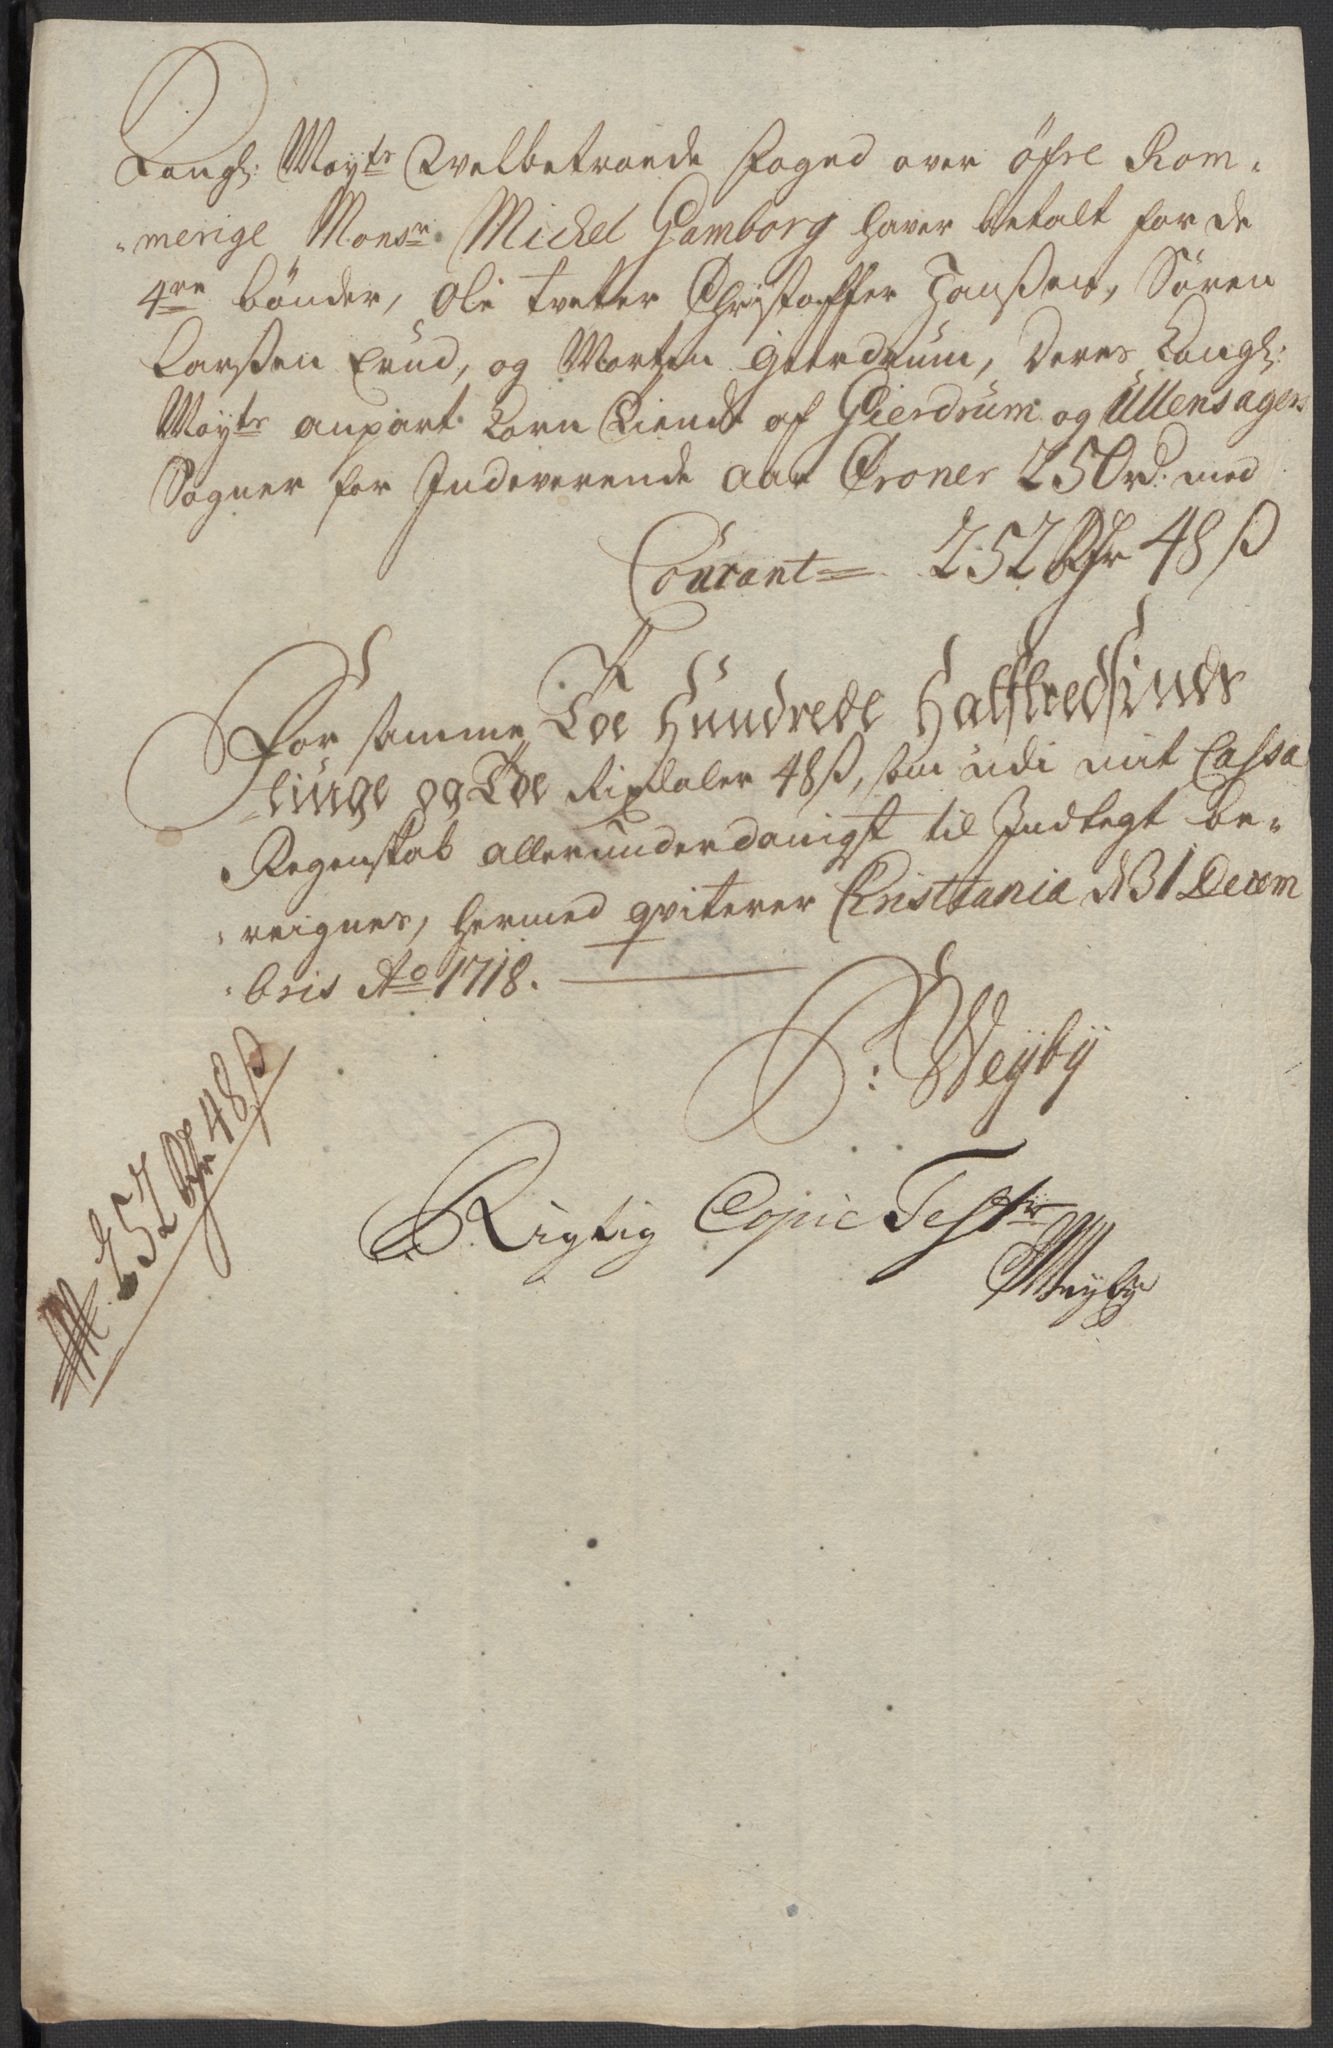 Kongl: Mayts Velbetroede Foged over Öfre Rom-
-merige Monsr Michel Gamborg haver betalt for de
4re bönder, Ole Tveter Christoffer Hanßen, Sören
Larßen Erud, og Morten Gierdrum, Deres Kongl:
Mayts anpart Korn Tiende af Gierdrum og Ullensagers
Sogner for Indeverende Aar Croner 250 rd: med
Courant = 252 Rdr 48 ß
For samme Toe Hundrede Halftredsinds
tiuge og Toe Rixdaler 48 ß, som udi mit Cassa
Regenskab allerunderdanigst til Indtegt be-
-reignes, hermed qviterer Christiania d 31 Decem
-bris Ao 1718.
P: Weyby
252 Rdr 48 ß
Rigtig Copie Test:
PWeyby